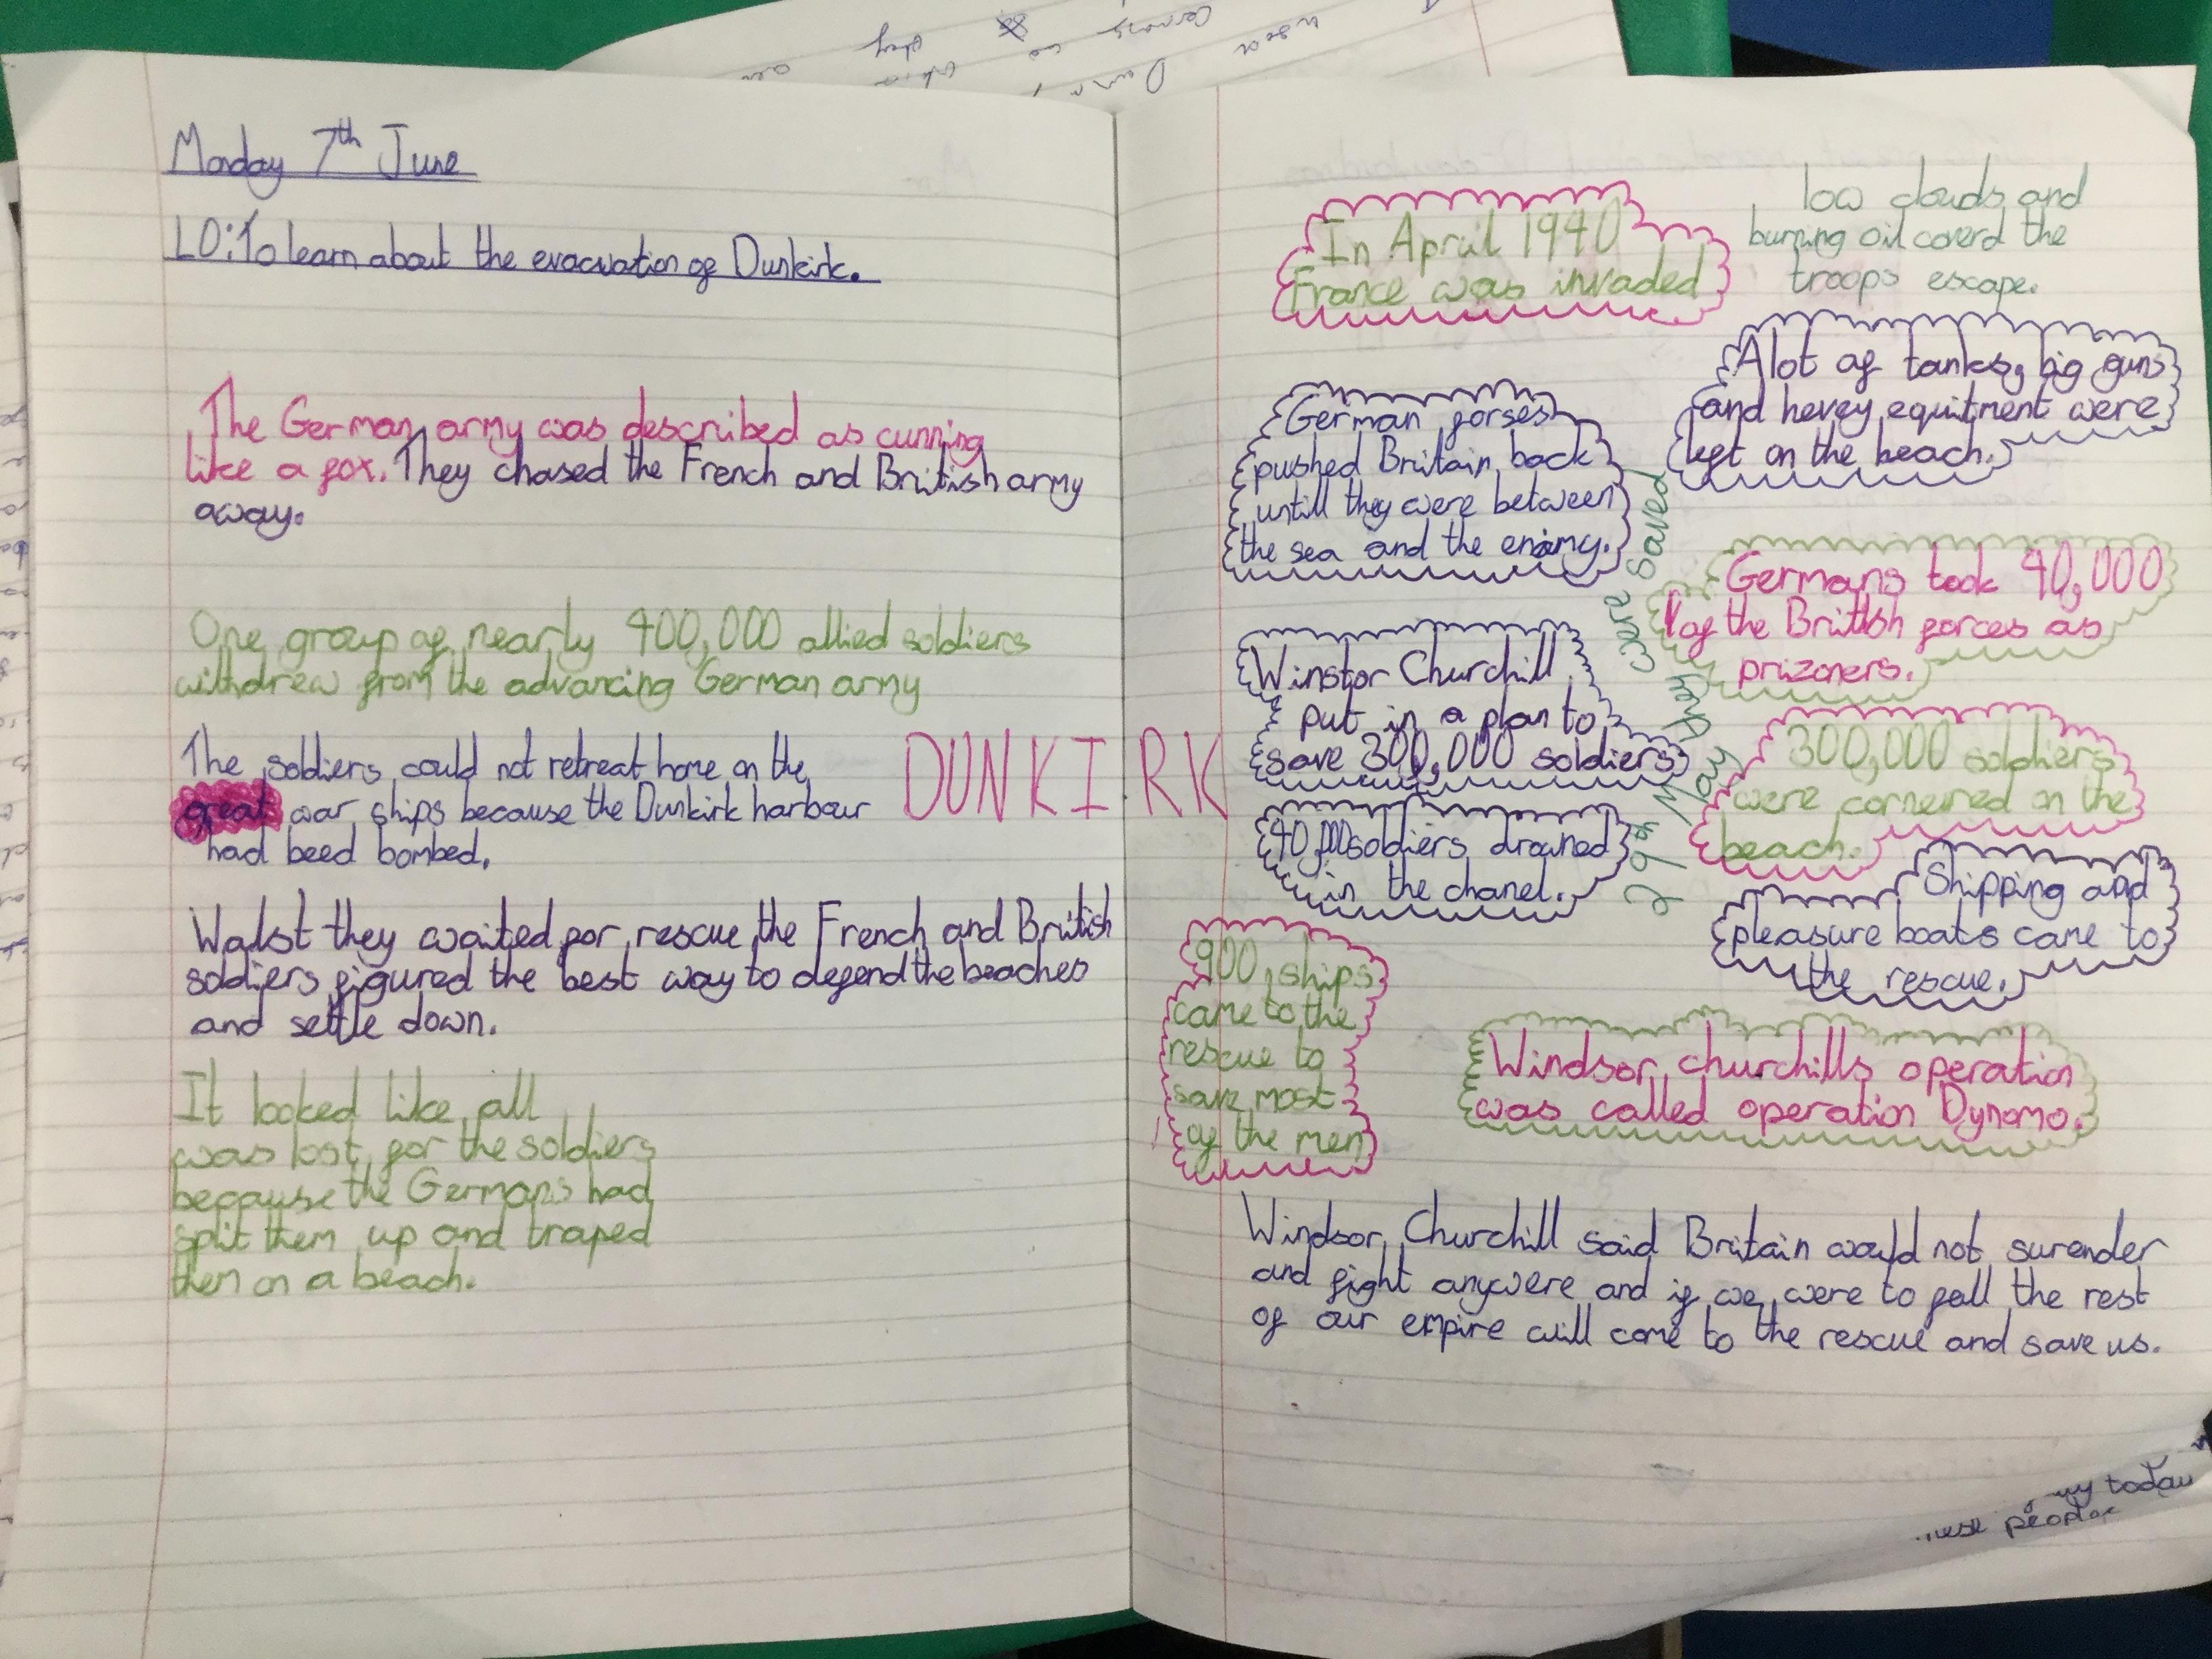 Monday 7th June
LO: To learn about the evacuation of Dunkirk.
The German army was described as cunning
like a fox. They chased the French and British army
away.
One group of nearly 400,000 allied soldiers
withdrew from the advancing German army
The soldiers could not retreat home on the
great war ships because the Dunkirk harbour
had beed bombed.
Walst they waited for rescue the French and British
soldiers figured the best way to defend the beaches
and settle down.
It looked like all
was lost for the soldiers
because the Germans had
split them up and traped
them on a beach.
DUNKIRK
In April 1940
France was invaded
low clouds and
burning oil coverd the
troops escape.
German forses
pushed Britain back
untill they were between
the sea and the enimy.
Alot of tanks, big guns
and hevey equitment were
left on the beach.
Winstor Churchill
put in a plan to
save 300,000 soldiers
Germans took 40,000
of the British forces as
prizoners.
29th May they were saved
40,000 soldiers drowned
in the chanel.
300,000 soldiers
were corneired on the
beach.
900, ships
came to the
rescue to
save most
of the men
Shipping and
pleasure boats came to
the rescue.
Windsor churchills operation
was called operation Dynomo.
Windsor Churchill said Britain would not surender
and fight anywere and if we were to fall the rest
of our empire will come to the rescue and save us.
today
people